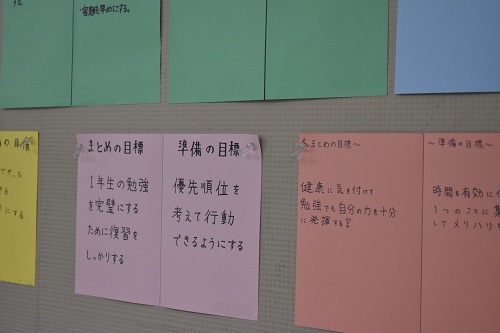 宿題を早めにする。
まとめの目標
1年生の勉強
を完璧にする
ために復習を
しっかりする
準備の目標
優先順位を
考えて行動
できるようにする
まとめの目標〜
健康に気を付けて
勉強でも自分の力を十分
に発揮する!
〜準備の目標〜
時間を有効に
1つのことに
してメリハリ